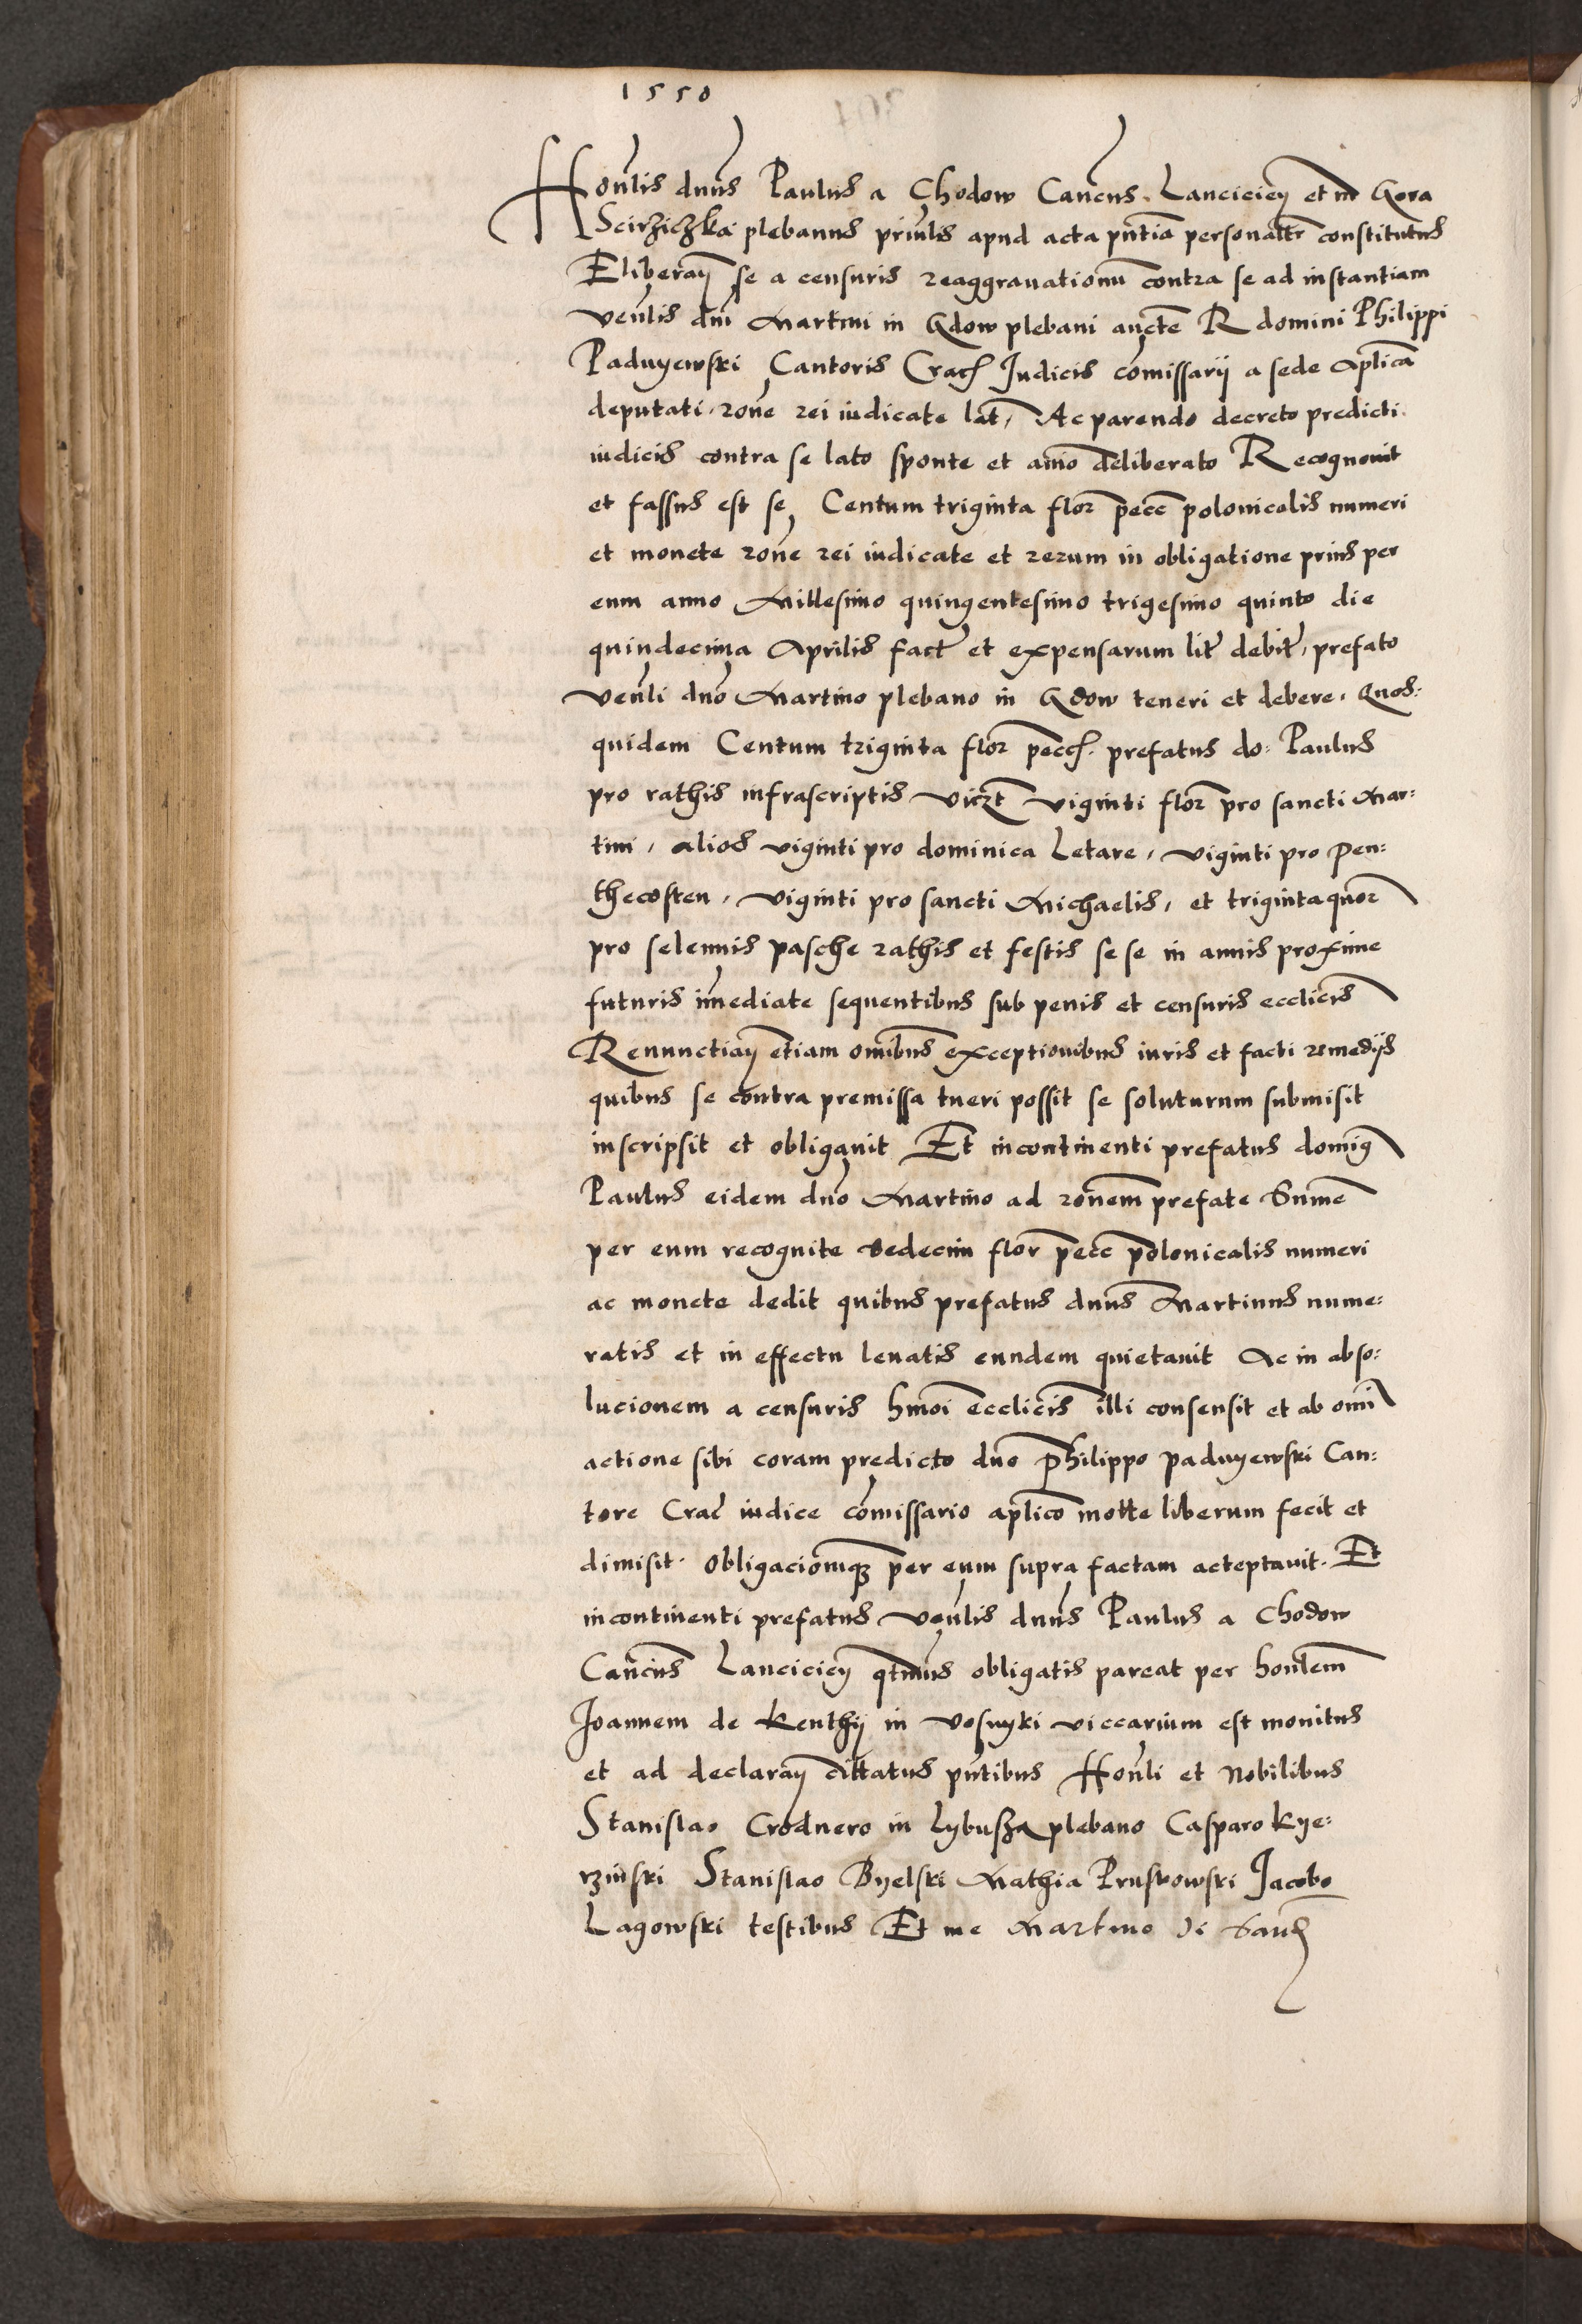 1550
Honlis dnus Paulus a Chodow Cancus Lanciciey et in Gora
Scirziczka plebanus prinlis apud acta pntia personalr constitutus
Eliberay se a censuris reaggrauationu contra se ad instantiam
venlis dni Martini in Gdow plebani aucte R domini Philippi
Paduyewski Cantoris Crac Judicis comissarij a sede aplica
deputati rone rei iudicate lat, Ac parendo decreto predicti
iudicis contra se lato sponte et aio deliberato Recognouit
et fassus est se Centum triginta flor pecc polonicalis numeri
et monete rone rei iudicate et rerum in obligatione prius per
eum anno Millesimo quingentesimo trigesimo quinto die
quindecima Aprilis fact et expensarum lit debit, prefato
venli dno Martino plebano in Gdow teneri et debere, Quos:
quidem Centum triginta flor pecc prefatus do: Paulus
pro rathis infrascriptis viczt viginti flor pro sancti Mar:
tini, alios viginti pro dominica Letare, viginti pro Pen:
thecosten, viginti pro sancti Michaelis, et trigintaquor
pro selennis pasche rathis et festis se se in annis proxime
futuris imediate sequentibus sub penis et censuris ecclicis
Renunctiay etiam omibus exceptionibus iuris et facti remedijs
quibus se contra premissa tueri possit se soluturum submisit
inscripsit et obligauit Et incontinenti prefatus domig
Paulus eidem dno Martino ad ronem prefate Sume
per eum recognite Sedecim flor pecc polonicalis numeri
ac monete dedit quibus prefatus dnus Martinus nume:
ratis et in effectu leuatis eundem quietauit Ac in abso:
lucionem a censuris hmoi ecclicis illi consensit et ab omi
actione sibi coram predicto dno Philippo Paduyewski Can:
tore Crac iudice comissario aplico motte liberum fecit et
dimisit. obligacionemqz per eum supra factam acteptauit. Et
incontinenti prefatus venlis dnus Paulus a Chodow
Cancus Lanciciey qtmus obligatis pareat per honlem
Joannem de Kenthy in vosnyki viccarium est monitus
et ad declaray cittatus pntibus Honli et Nobilibus
Stanislao Crodnero in Lybusza plebano Casparo Kye:
rzinski Stanislao Byelski Mathia Pruskowski Jacobo
Lagowski testibus Et me Martino de